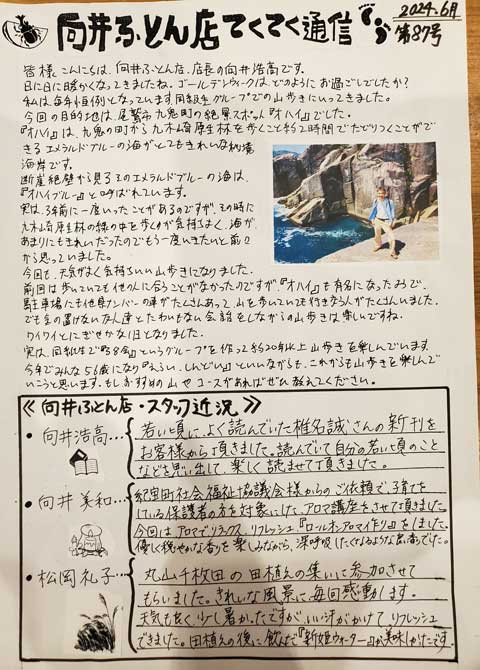 向井ふとん店てくてく通信
2024.6月
第87号
皆様こんにちは、向井ふとん店、店長の向井浩高です。
日に日に暖かくなってきましたね。ゴールデンウィークは、どのようにお過ごしでしたか？
私は、毎年恒例となっています同級生グループでの山歩きにいってきました。
今回の目的地は、尾鷲市九鬼町の絶景スポット『オハイ』でした。
『オハイ』は、九鬼の町から九木崎原生林を歩くこと約2時間でたどりつくことがで
きるエメラルドブルーの海がとてもきれいな
海岸です。
断崖絶壁から見るそのエメラルドブルーの海は、
『オハイブルー』と呼ばれています。
実は、3年前に一度いったことがあるのですが、その時に
九木崎原生林の緑の中を歩くのが気持よく、海が
あまりにもきれいだったのでもう一度いきたいと前々
から思っていました。
今回も、天気がよく気持ちいい山歩きになりました。
前回は歩いていても他の人に会うことがなかったのですが、『オハイ』も有名になったようで、
駐車場にも他県ナンバーの車がたくさんあって、山を歩いていても行きかう人がたくさんいました。
でも気の置けない友人達とたわいもない会話をしながらの山歩きは楽しいですね。
ワイワイとにぎやかな1日となりました。
実は、同級生で というグループを作って約20年以上山歩きを楽しんでいます
今年でみんな56歳になり『ふるい、しんどい』といいながらも、これからも山歩きを楽しんで
いこうと思います。もし、おすすめの山やコースがあればぜひ教えてください。
《向井ふとん店・スタッフ近況》
・向井浩高…
若い頃に、よく読んでいた椎名誠さんの新刊を
お客様から頂きました。読んでいて自分の若い頃のこと
なども思い出して、楽しく読ませて頂きました。
・向井美和…
紀宝町社会福祉協議会様からのご依頼で、子育て
している保護者の方を対象にした、アロマ講座をさせて頂きました。
今回はアロマでリラックス、リフレッシュ『ロールオンアロマ作り』をしました。
優しく穏やかな香りを楽しみながら、深呼吸したくなるような時間でした。
・松岡礼子…
丸山千枚田の田植えの集いに参加させて
もらいました。きれいな風景に、毎回感動します。
天気も良く、少し暑かったですが、いい汗がかけてリフレッシュ
できました。田植えの後に飲んだ『新姫ウォーター』が美味しかったです。